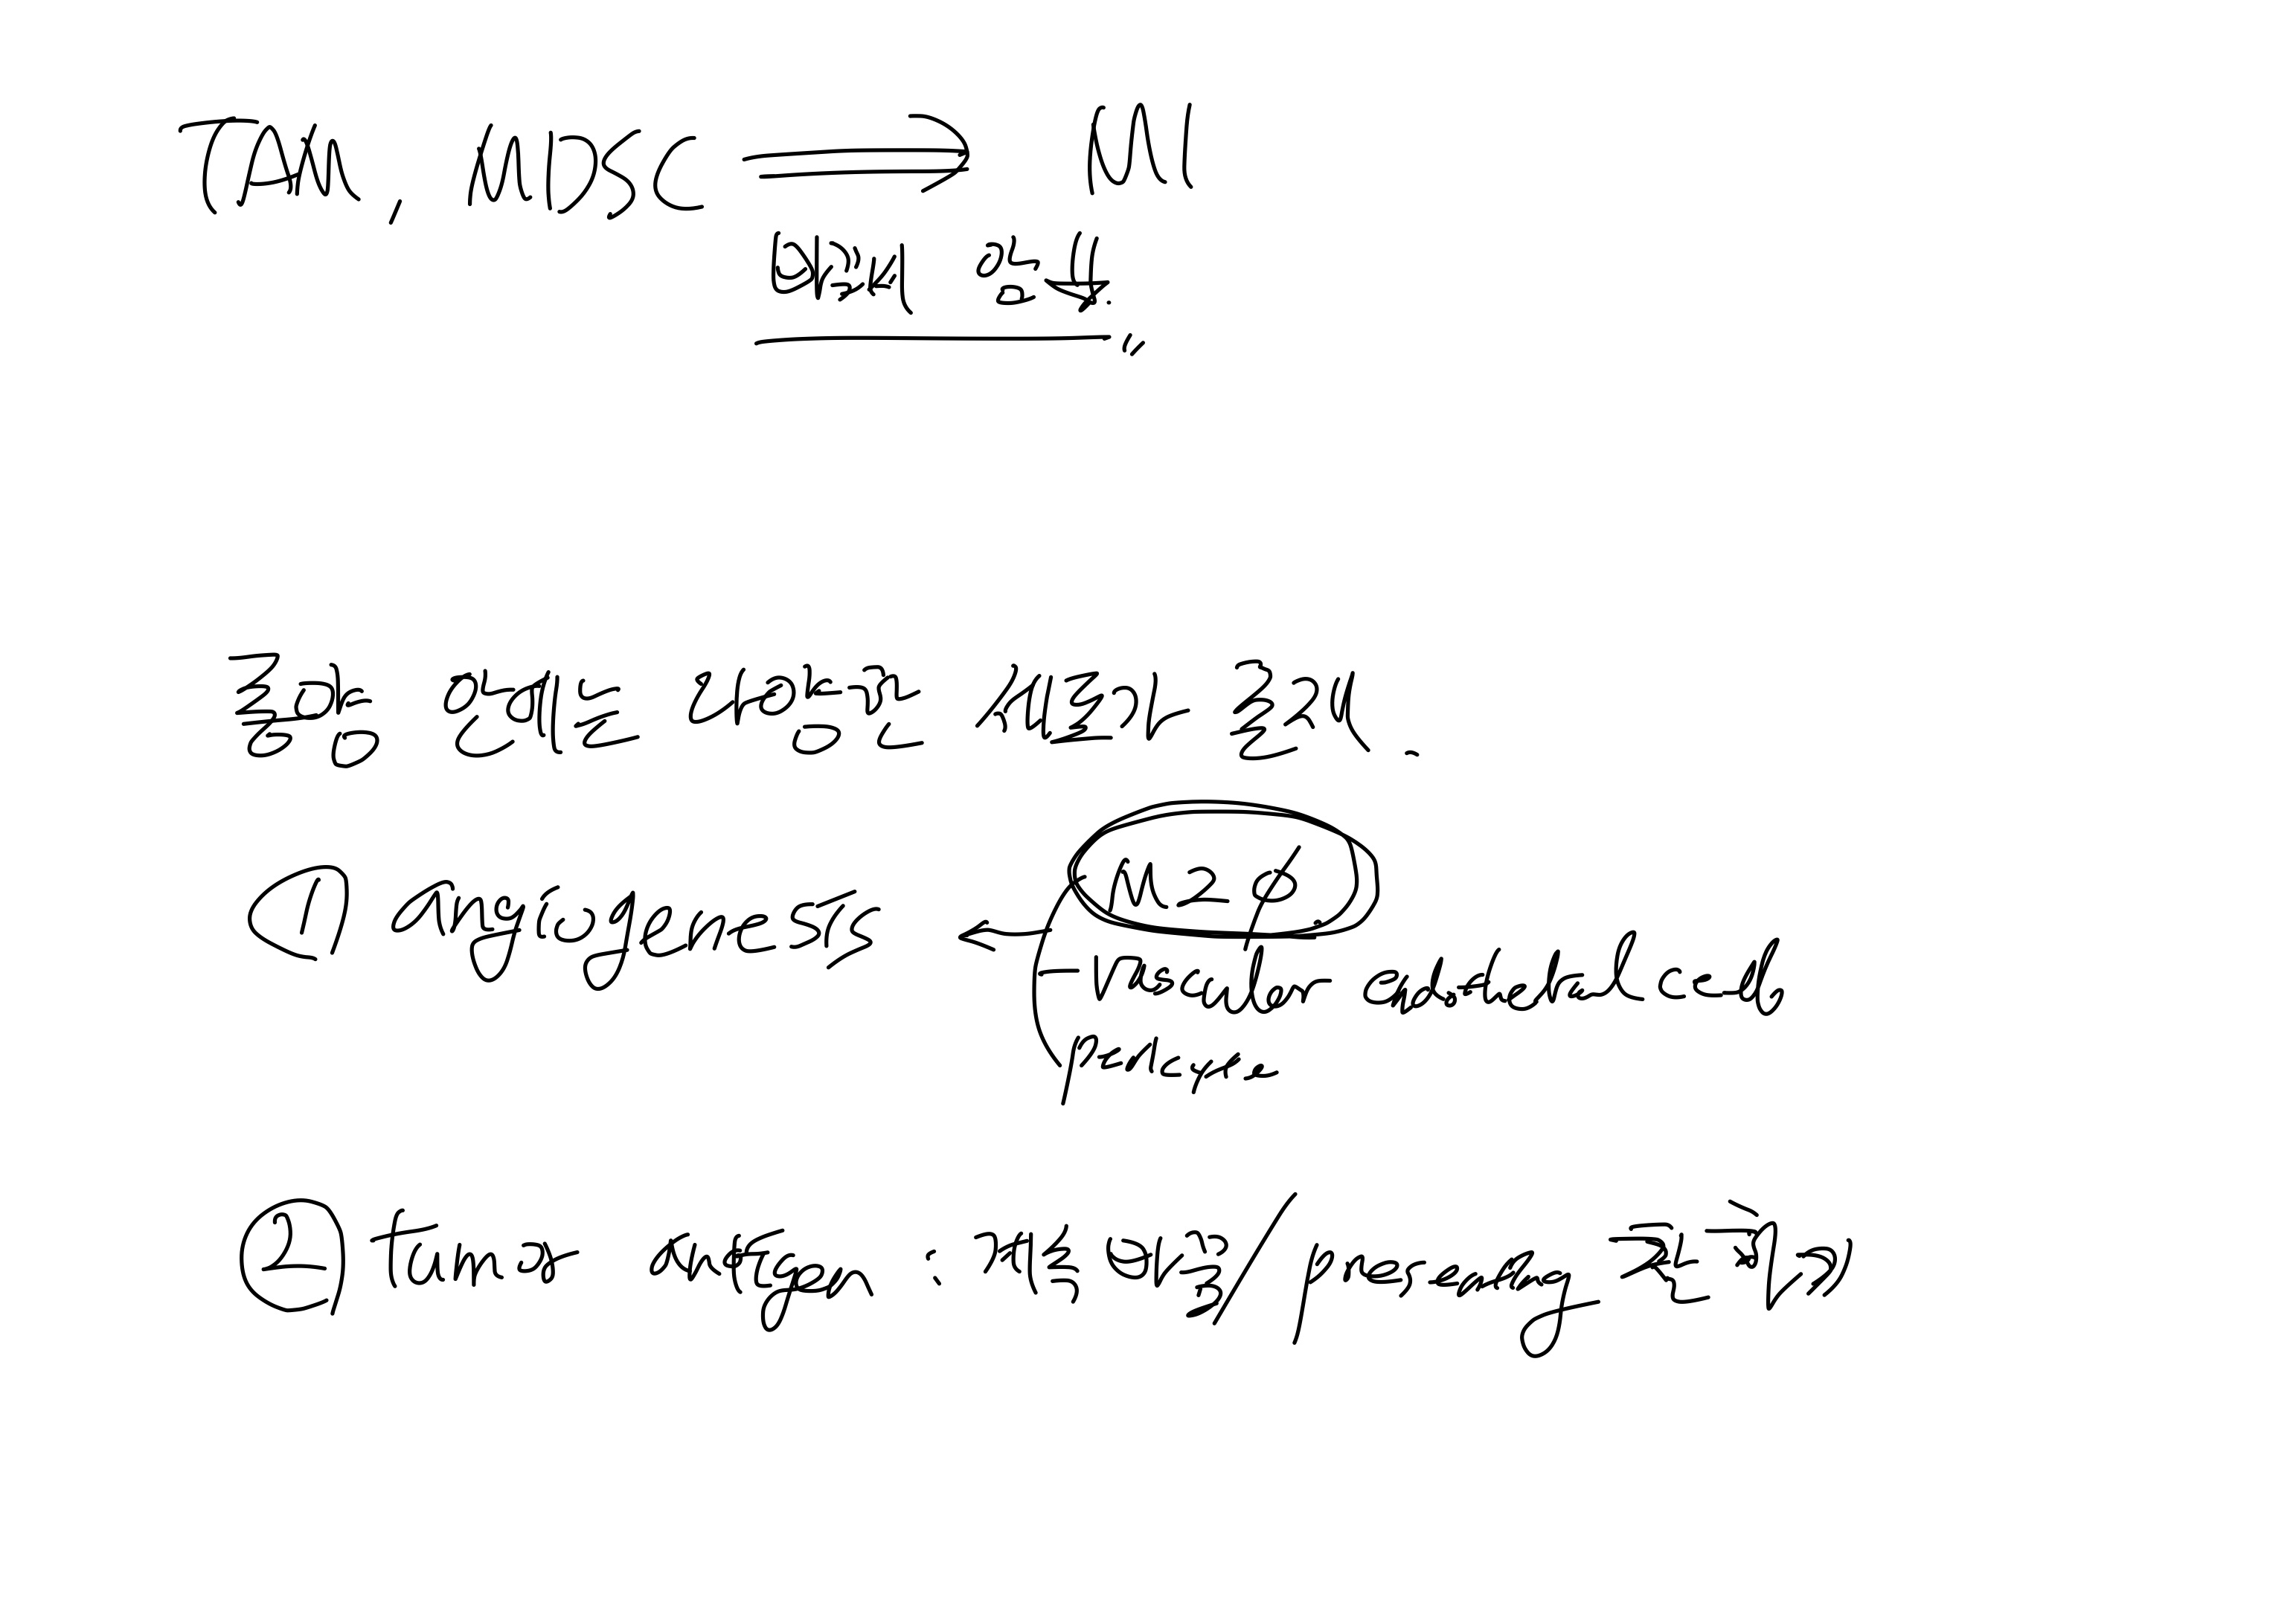 TAM, MDSC ⇒ M1
종양 안에는 다양한 세포가 존재.
① angiogenesis ← M2φ
Vascular endothelial cells
pericyte
② tumor antigen : 계속 변형/ presenting